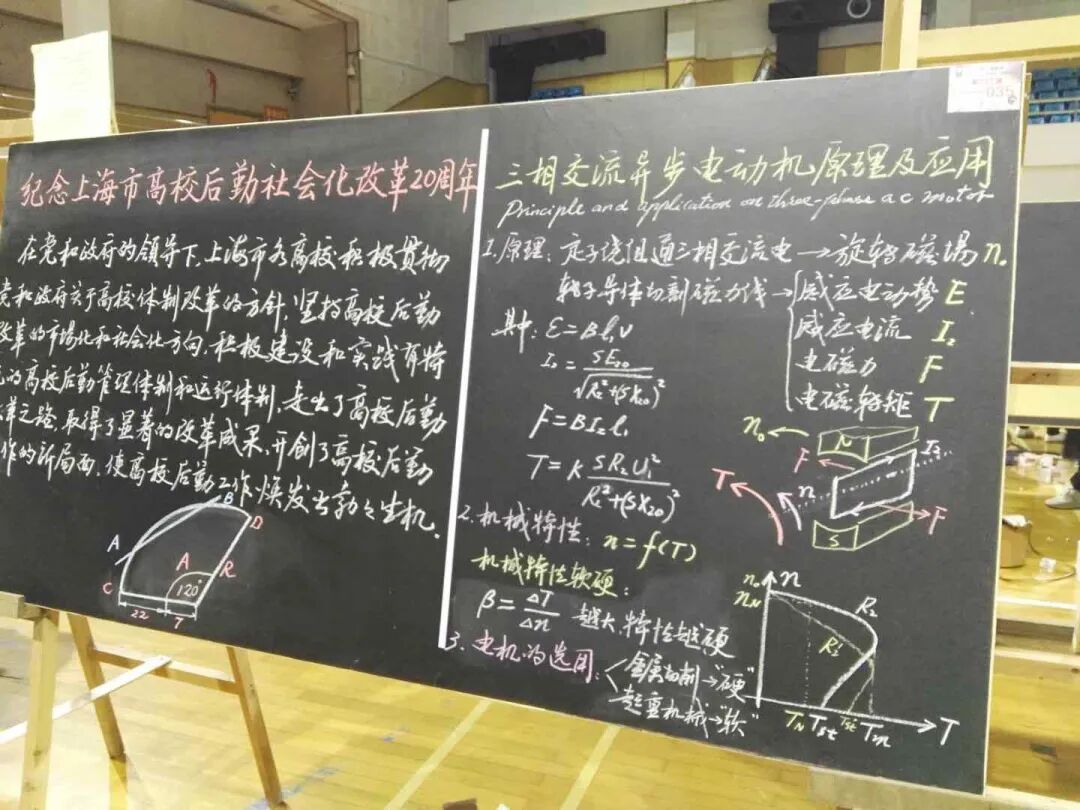 纪念上海市高校后勤社会化改革20周年
在党和政府的领导下,上海市各高校积极贯彻
党和政府关于高校体制改革的方针,坚持高校后勤
改革的市场化和社会化方向,积极建设和实践有特
色的高校后勤管理体制和运行体制,走出了高校后勤
改革之路,取得了显著的改革成果,开创了高校后勤
工作的新局面,使高校后勤工作焕发出勃勃生机.
B
D
A
A
R
C
120°
22
T
三相交流异步电动机原理及应用
Principle and application on three-phase a c motor
1.原理:定子绕组通三相交流电→旋转磁场 n₀
转子导体切割磁力线→
感应电动势 E
感应电流 I₂
电磁力 F
电磁转矩 T
其中: ε=Bl₁v
I₂=SE₂₀/√R₂²+(SX₂₀)²
F=BI₂l₁
T=K SR₂U₁²/R₂²+(SX₂₀)²
n₀
N
I₂
F
T
n
F
S
2.机械特性: n=f(T)
机械特性软硬:
β=ΔT/Δn 越大,特性越硬
3.电机的选用:
金属切削→"硬"
起重机械→"软"
n₀
n
n_N
R₂
R₂'
T_N T_st T_st' T_m
T
035